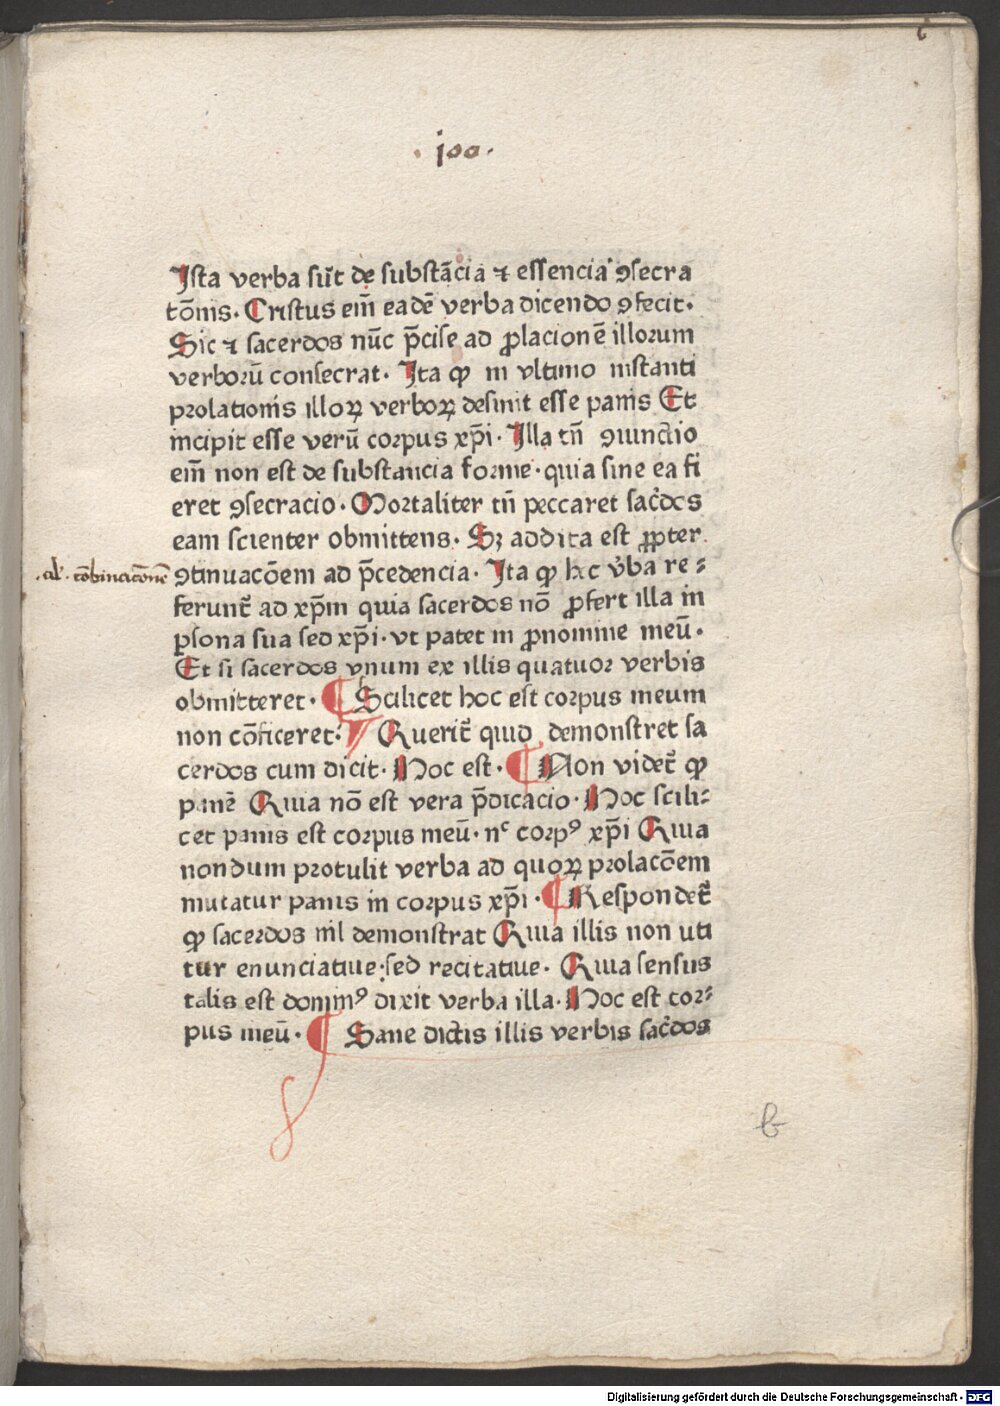 6
· 100 ·
Ista verba sūt de substācia ⁊ essencia ꝯsecra
tōnis· Cristus em̄ eadē verba dicendo ꝯfecit·
Sic ⁊ sacerdos nūc p̄cise ad ꝓlacionē illorum
verborū consecrat· Ita ꝙ in vltimo instanti
prolationis illoꝝ verboꝝ desinit esse panis Et
incipit esse verū corpus xp̄i· Illa tn̄ ꝯiunctio
em̄ non est de substancia forme· quia sine ea fi
eret ꝯsecracio· Mortaliter tn̄ peccaret sac̄dos
eam scienter obmittens· Sꝫ addita est ꝓpter
ꝯtinuacōem ad p̄cedencia· Ita ꝙ hec v̓ba re⸗
ferunt̄ ad xp̄m quia sacerdos nō ꝓfert illa in
ꝑsona sua sed xp̄i· vt patet in ꝓnomine meū·
Et si sacerdos vnum ex illis quatuor verbis
obmitteret· ¶ Scilicet hoc est corpus meum
non cōficeret: ¶ Querit̄ quid demonstret sa
cerdos cum dicit· Hoc est· ¶ Non videt̄ ꝙ
panē Quia nō est vera p̄dicacio· Hoc scili⸗
cet panis est corpus meū· nᶜ corpꝰ xp̄i Quia
nondum protulit verba ad quoꝝ prolacōem
mutatur panis in corpus xp̄i· ¶ Respondet̄
ꝙ sacerdos nil demonstrat Quia illis non uti
tur enunciatiue· sed recitatiue· Quia sensus
talis est dominꝰ dixit verba illa· Hoc est cor⸗
pus meū· ¶ Sane dictis illis verbis sac̄dos
b
Digitalisierung gefördert durch die Deutsche Forschungsgemeinschaft - DFG